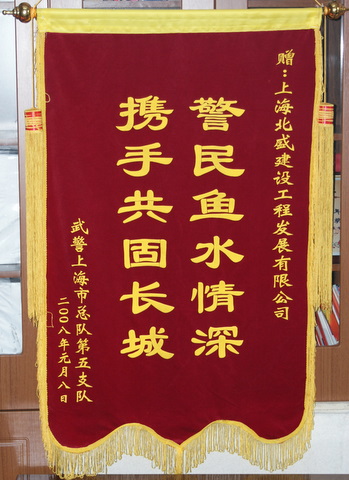 赠：上海北盛建设工程发展有限公司
警民鱼水情深
携手共固长城
武警上海市总队第五支队
二〇〇八年元月八日